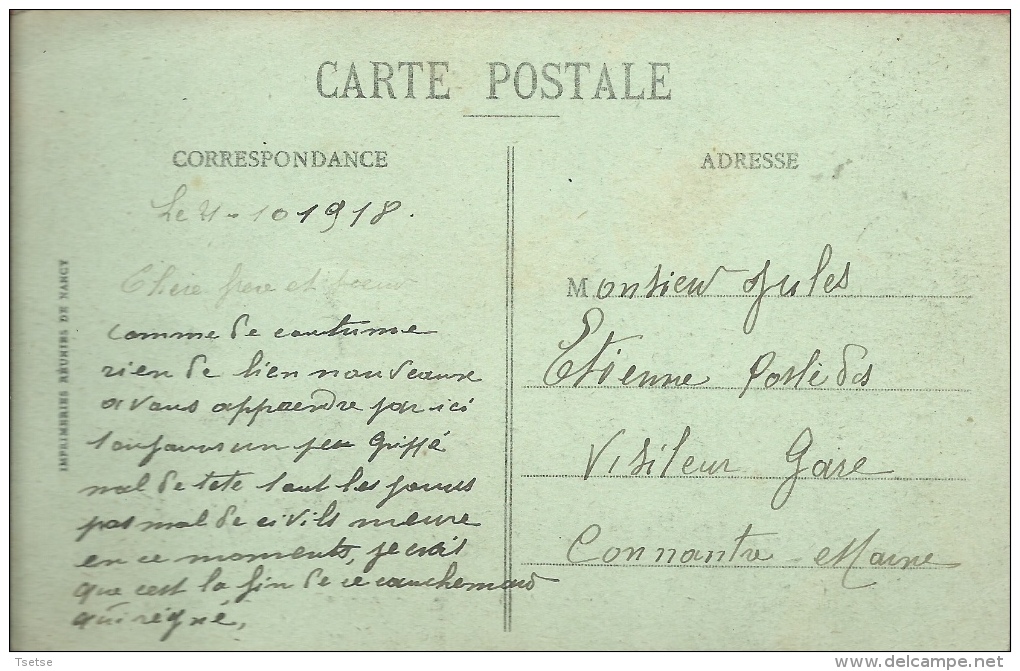 CARTE POSTALE
CORRESPONDANCE
Le 21-10 1918.
Chère frere et soeur
comme de coutume
rien de bien nouveaux
a vous apprendre par ici
toujours un peu grippé
mal de tete tout les jours
pas mal de civils meure
en ce moments, je crois
que c'est la fin de ce cauchemard
qui règné,
ADRESSE
Monsieur Jules
Etienne Poste des
Visiteur Gare
Connantre Marne
IMPRIMERIES RÉUNIES DE NANCY
Tsetse
delcampe.net